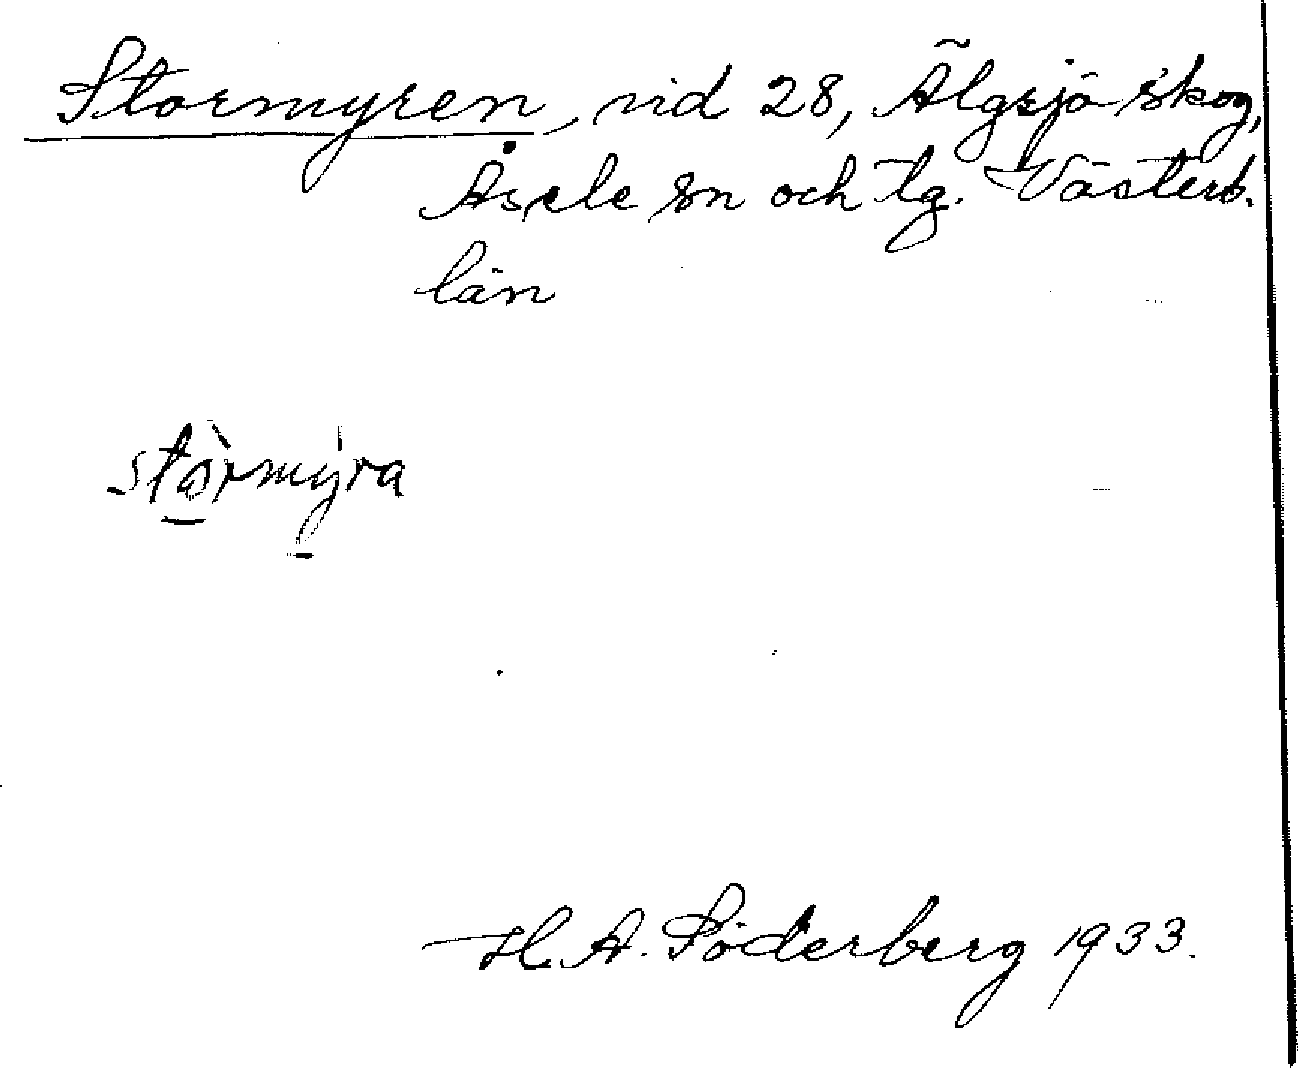 Stormyren, vid 28, Älgsjö skog,
Åsele sn och tg. Västerb.
län
stòrmýra
H. A. Söderberg 1933.